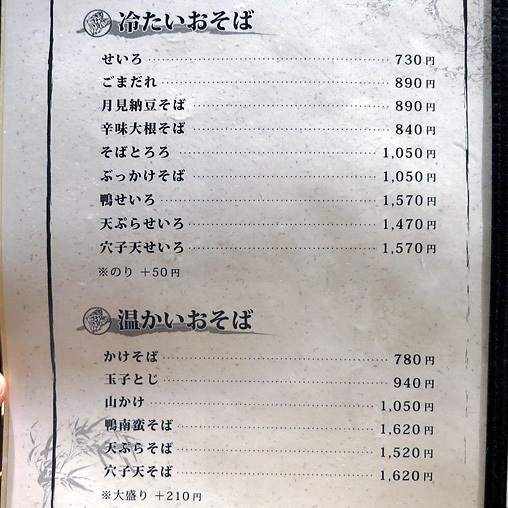 冷たいおそば
せいろ 730円
ごまだれ 890円
月見納豆そば 890円
辛味大根そば 840円
そばとろろ 1,050円
ぶっかけそば 1,050円
鴨せいろ 1,570円
天ぷらせいろ 1,470円
穴子天せいろ 1,570円
※のり +50円
温かいおそば
かけそば 780円
玉子とじ 940円
山かけ 1,050円
鴨南蛮そば 1,620円
天ぷらそば 1,520円
穴子天そば 1,620円
※大盛り +210円